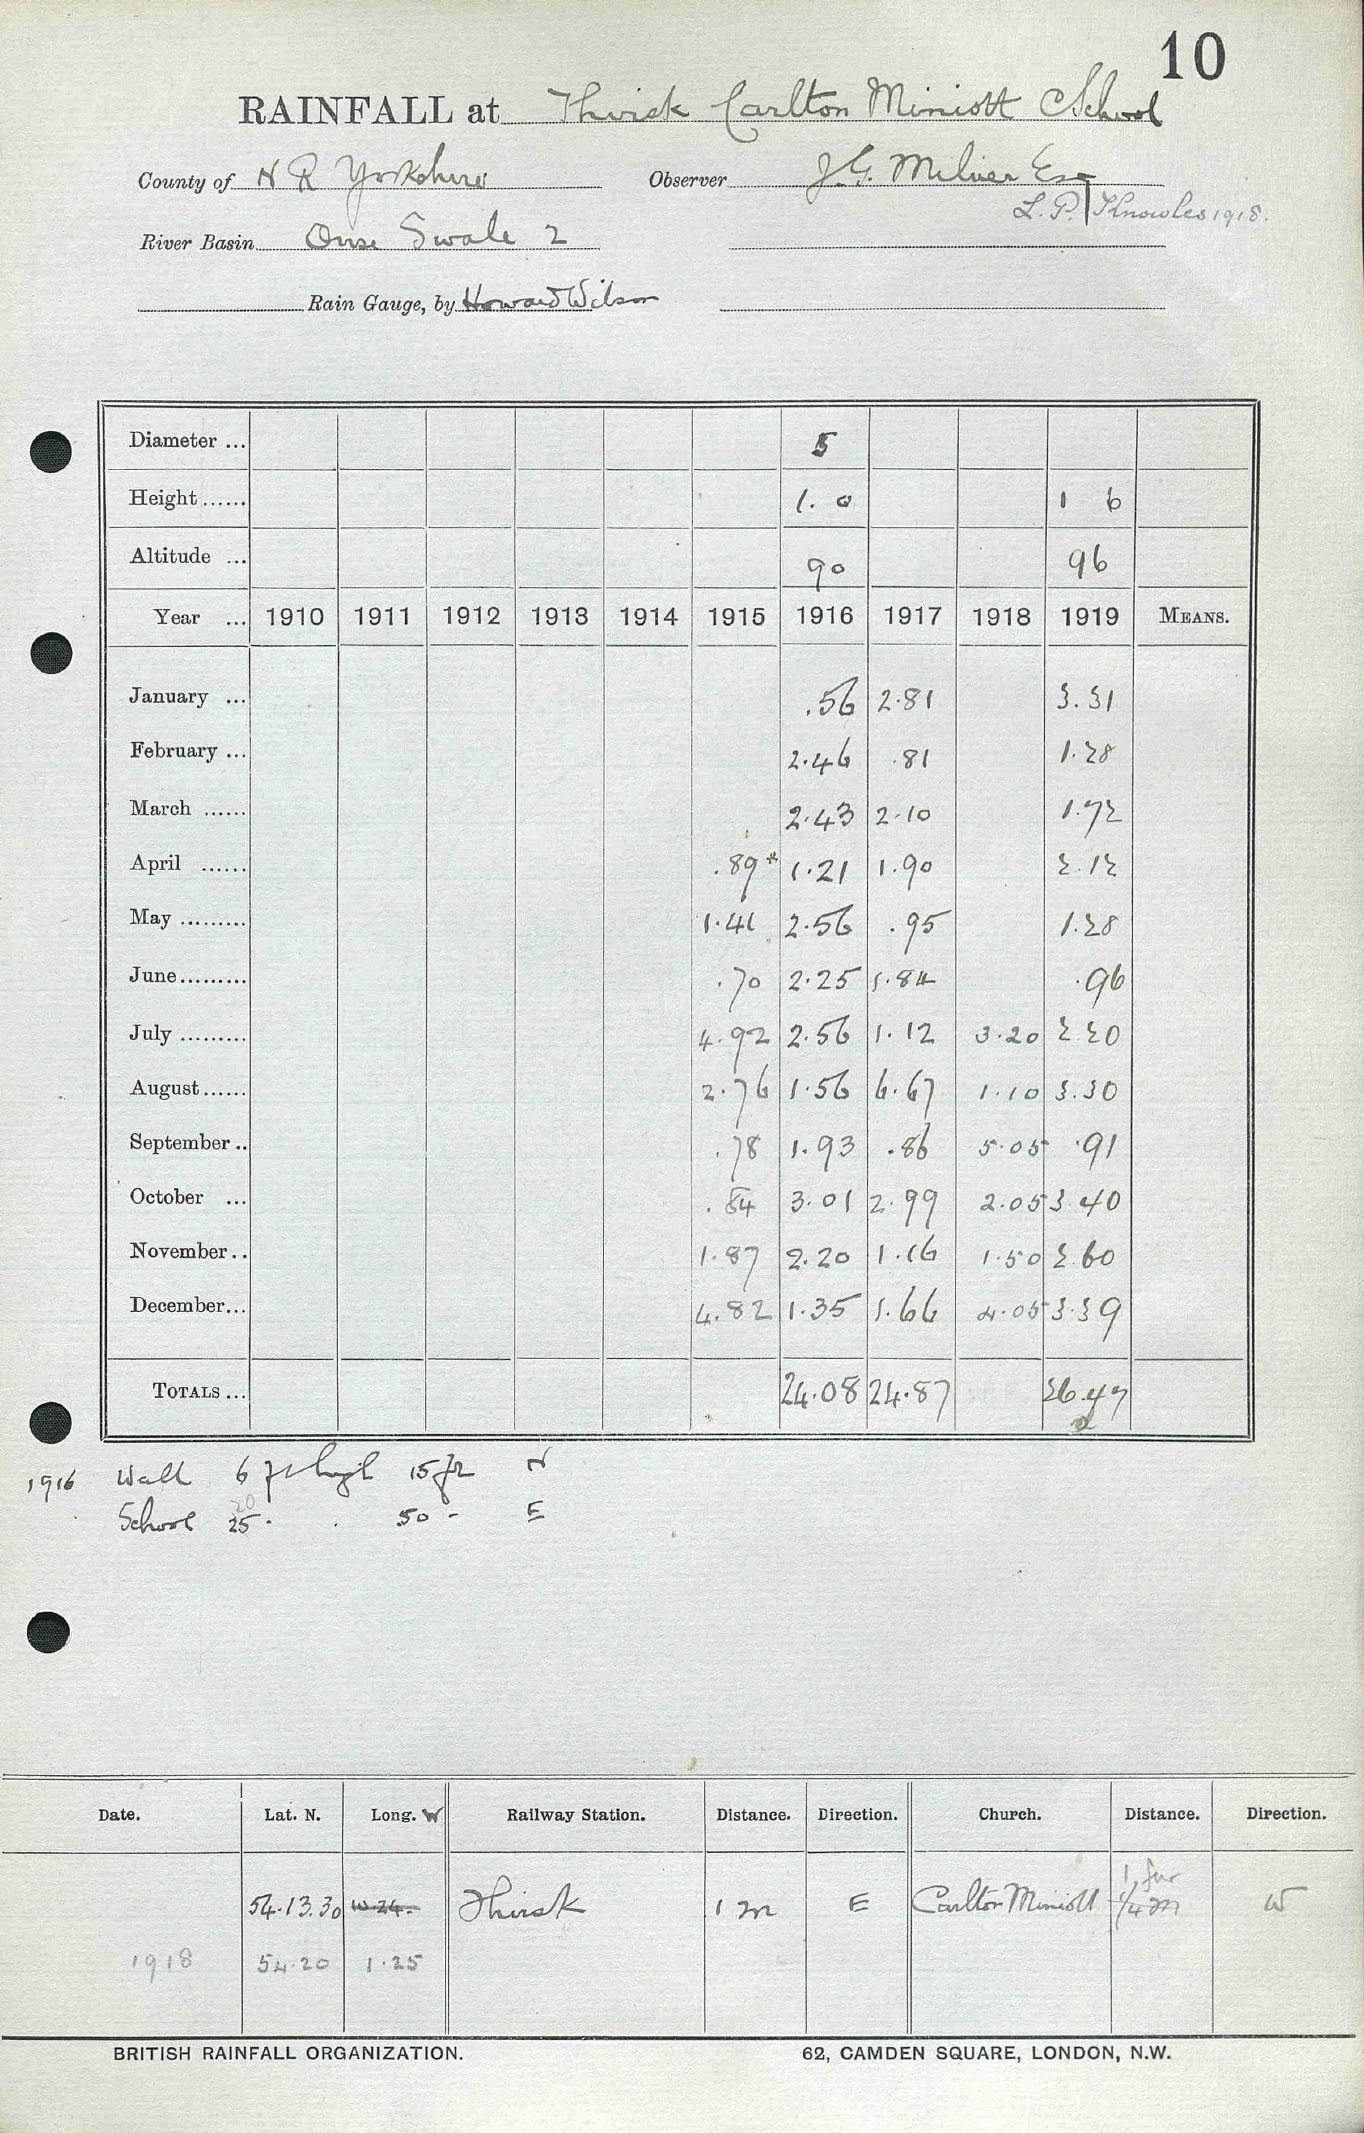 10
RAINFALL at Thirsk Carlton Miniott School
County of N R Yorkshire Observer J.G. Milner Esq
L. P. Knowles 1918.
River Basin Ouse Swale 2
Rain Gauge, by Howard Wilson
Diameter ... 5
Height ...... 1. 0 1 6
Altitude ... 90 96
Year ... 1910 1911 1912 1913 1914 1915 1916 1917 1918 1919 MEANS.
January ... .56 2.81 3.31
February ... 2.46 .81 1.28
March ...... 2.43 2.10 1.72
April ...... .89* 1.21 1.90 2.12
May ......... 1.41 2.56 .95 1.28
June......... .70 2.25 1.84 .96
July ......... 4.92 2.56 1.12 3.20 2.20
August...... 2.76 1.56 6.67 1.10 3.30
September.. .78 1.93 .86 5.05 .91
October ... .84 3.01 2.99 2.05 3.40
November.. 1.87 2.20 1.16 1.50 2.60
December... 4.82 1.35 1.66 4.05 3.39
TOTALS ... 24.08 24.87 26.47
1916 Wall 6 ft high 15 ft N
20
School 25 " . 50 - E
Date. Lat. N. Long. W Railway Station. Distance. Direction. Church. Distance. Direction.
1 fur
54.13.30 W.24. Thirsk 1 m E Carlton Miniott 1/4 m W
1918 54.20 1.25
BRITISH RAINFALL ORGANIZATION. 62, CAMDEN SQUARE, LONDON, N.W.